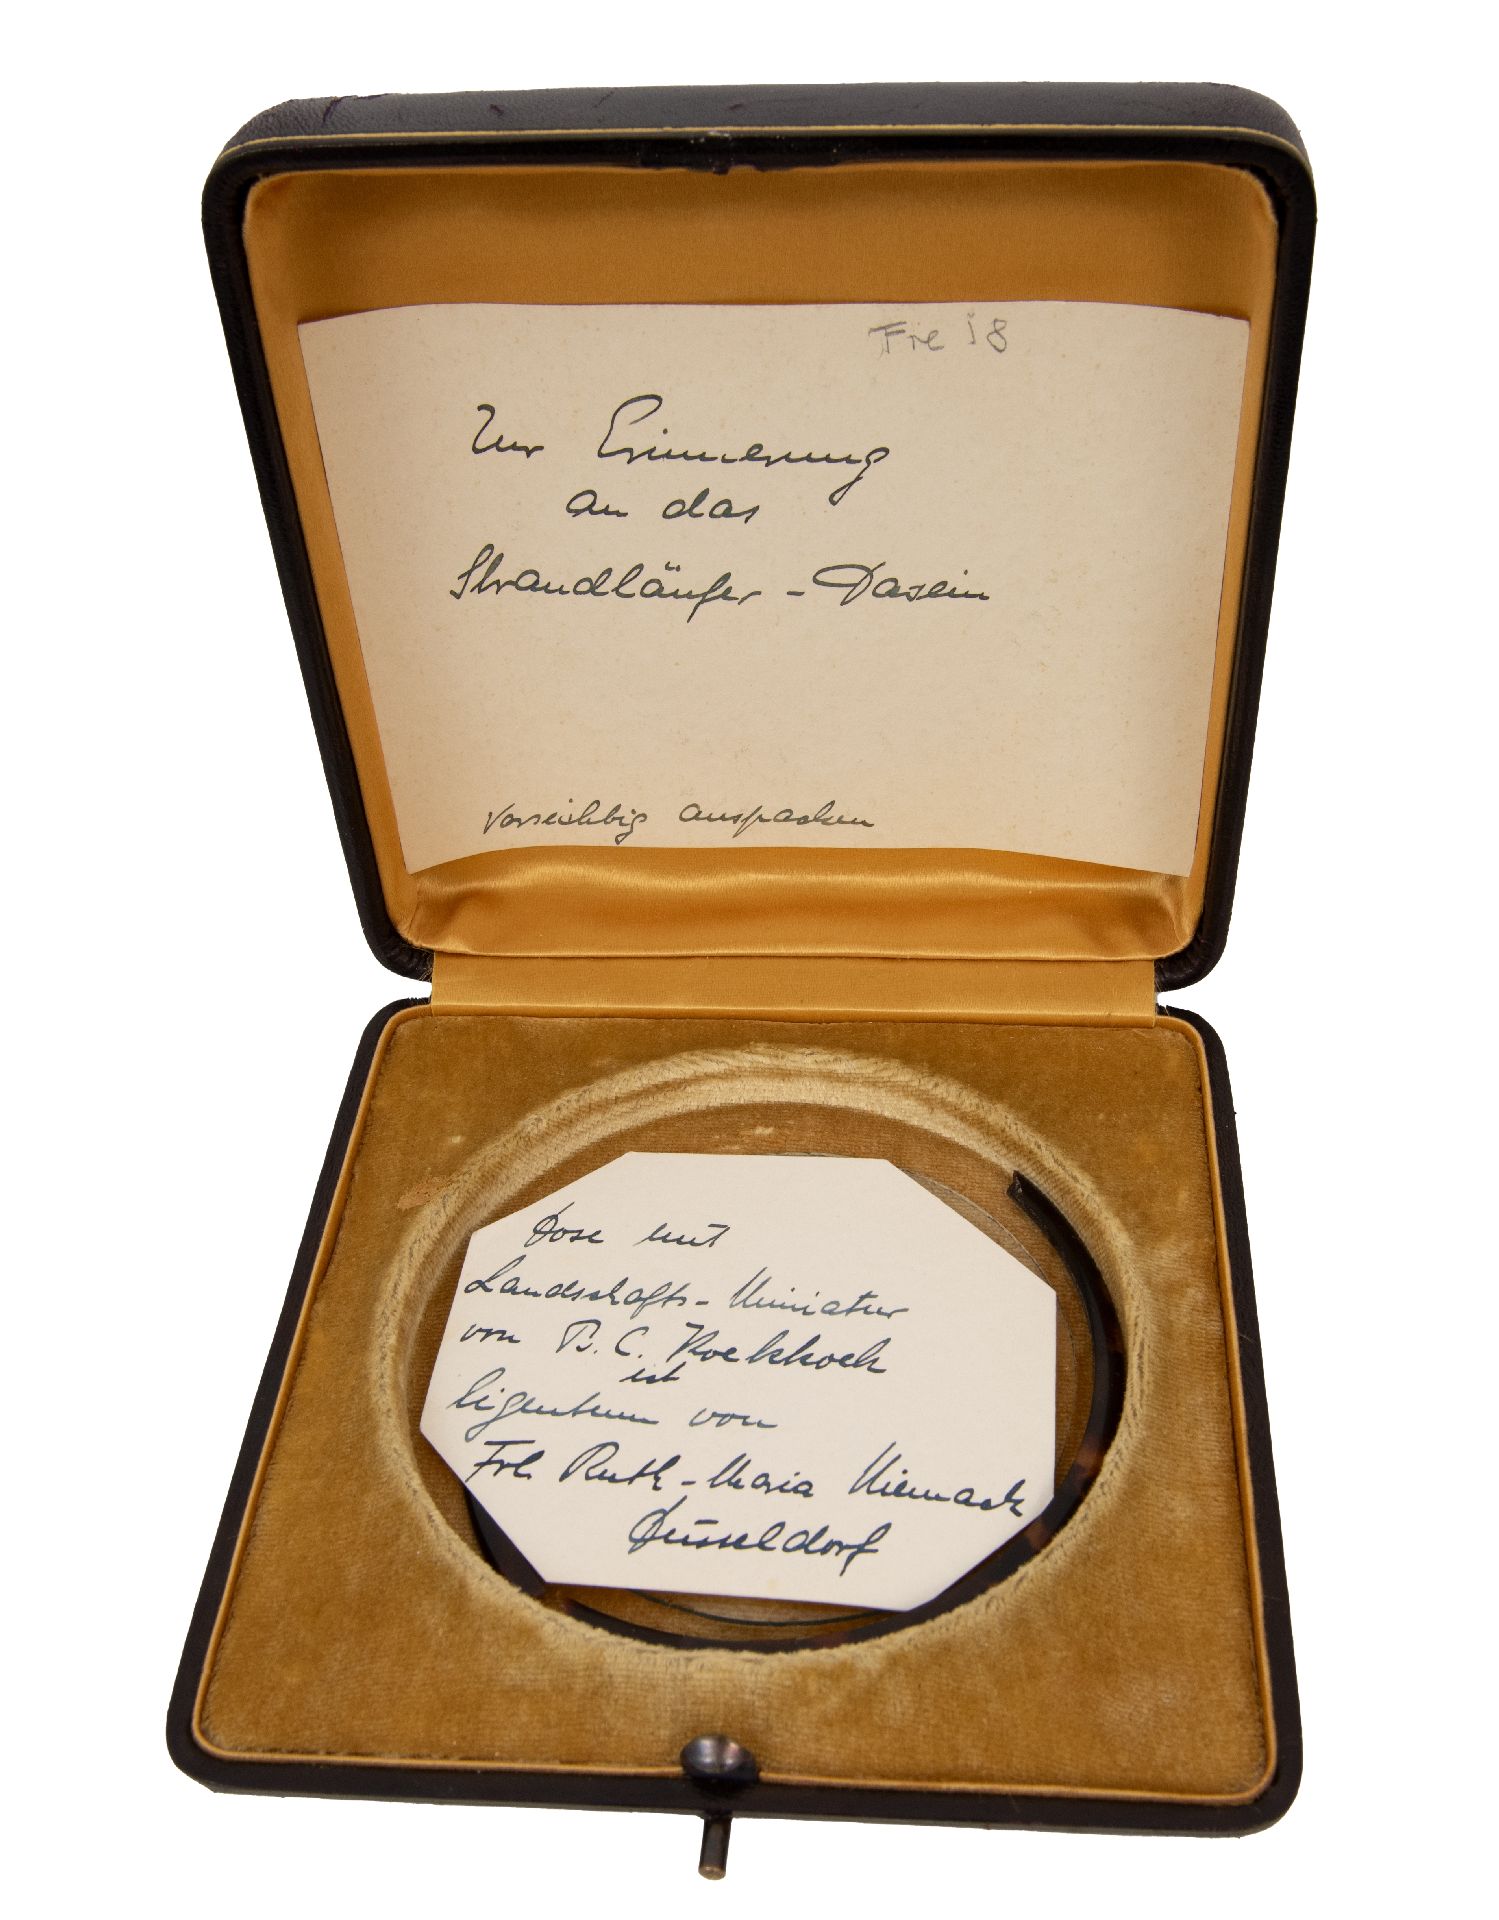 Fre 18
Zur Erinnerung
an das
Strandläufer-Dasein
vorsichtig auspacken
Dose mit
Landschafts-Miniatur
von B. C. Koekkoek
ist
Eigentum von
Frl. Ruth-Maria Niemack
Düsseldorf